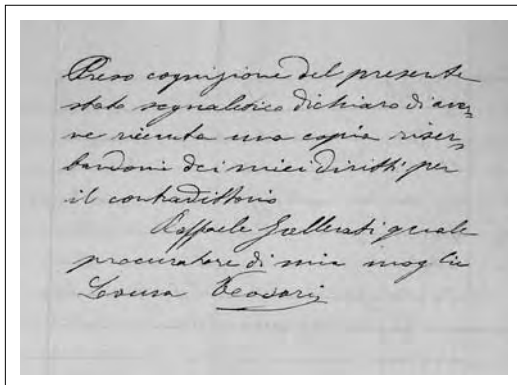 Preso cognizione del presente
stato segnaletico dichiaro di aver,
ne ricevuta una copia riser,
bandomi dei miei diritti per
il contradittorio
Raffaele Gallerati quale
procuratore di mia moglie
Louisa